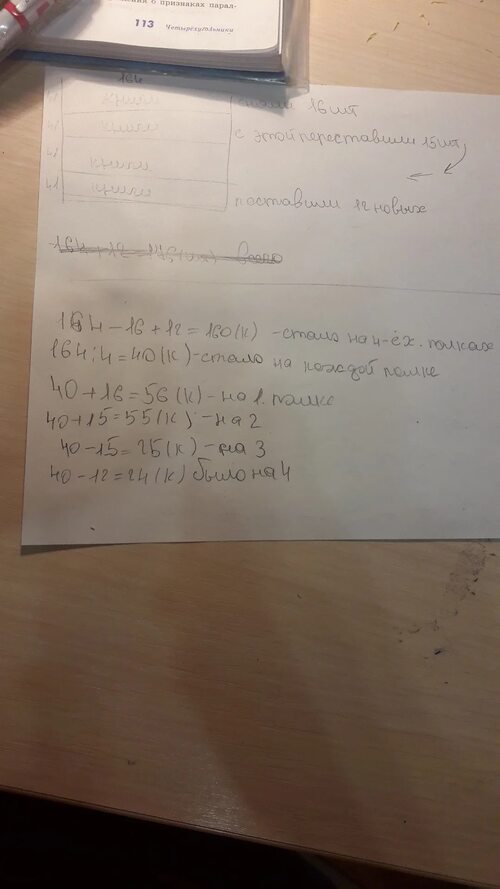 о признаках парал-
113 Четырёхугольники
164
41 книги 16 шт
41 книги с этой переставили 15 шт
41 книги
41 книги поставили 12 новых
164 - 16 + 12 = 160 (к) - стало на 4-ёх. полках
164 : 4 = 40 (к) - стало на каждой полке
40 + 16 = 56 (к) - на 1. полке
40 + 15 = 55 (к) - на 2
40 - 15 = 25 (к) - на 3
40 - 12 = 24 (к) было на 4